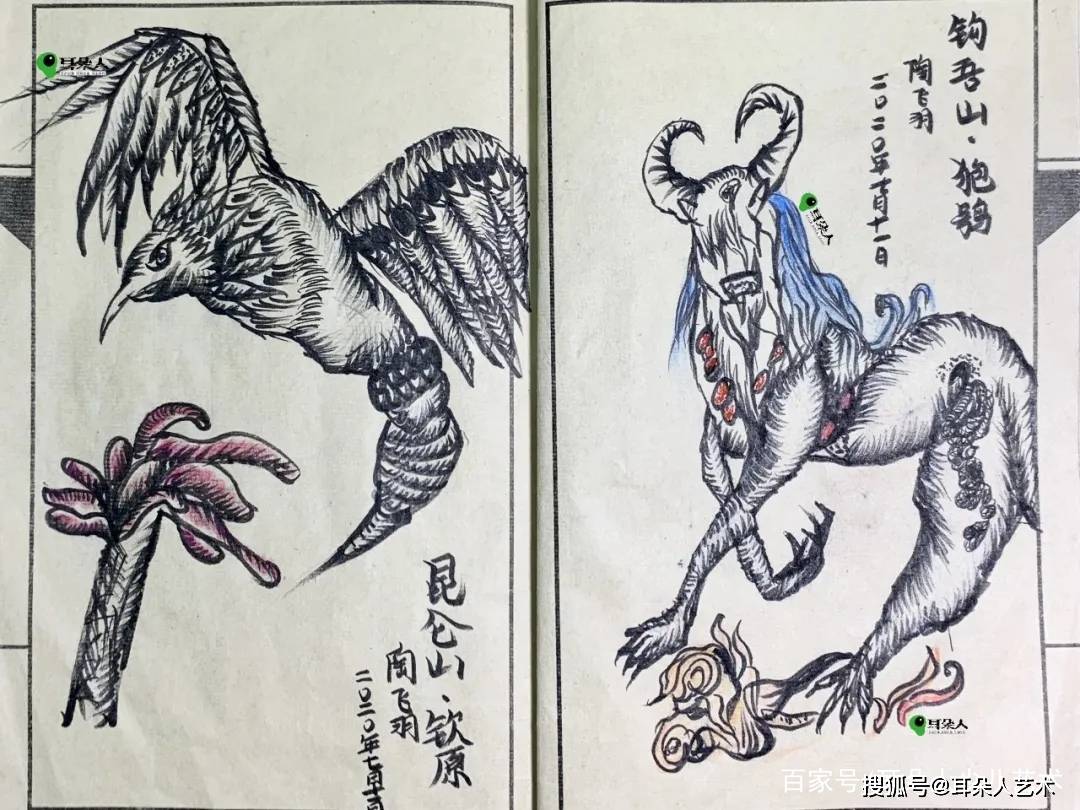 耳朵人
昆仑山·钦原
陶飞羽
二〇二〇年七月十一日
钩吾山·狍鸮
陶飞羽
二〇二〇年七月十一日
耳朵人
耳朵人
搜狐号@耳朵人艺术